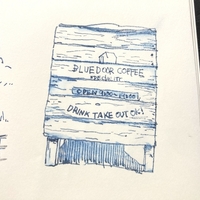 BLUE DOOR COFFEE
SPECIALITY
OPEN
DRINK TAKE OUT OK!